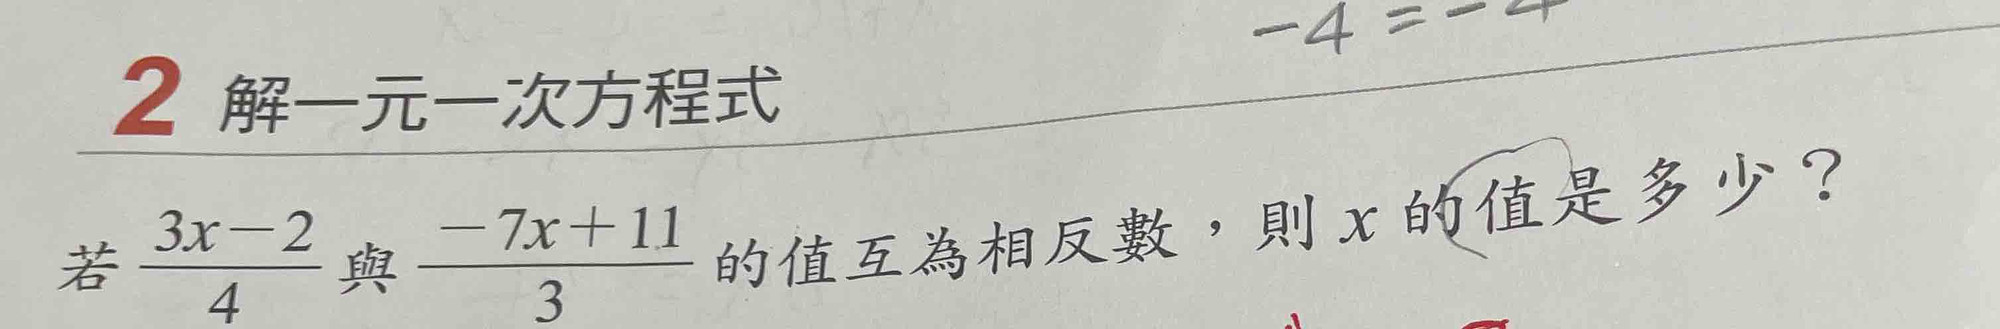 -4=-4
2 解一元一次方程式
若 \frac{3x-2}{4} 與 \frac{-7x+11}{3} 的值互為相反數，則 x 的值是多少？